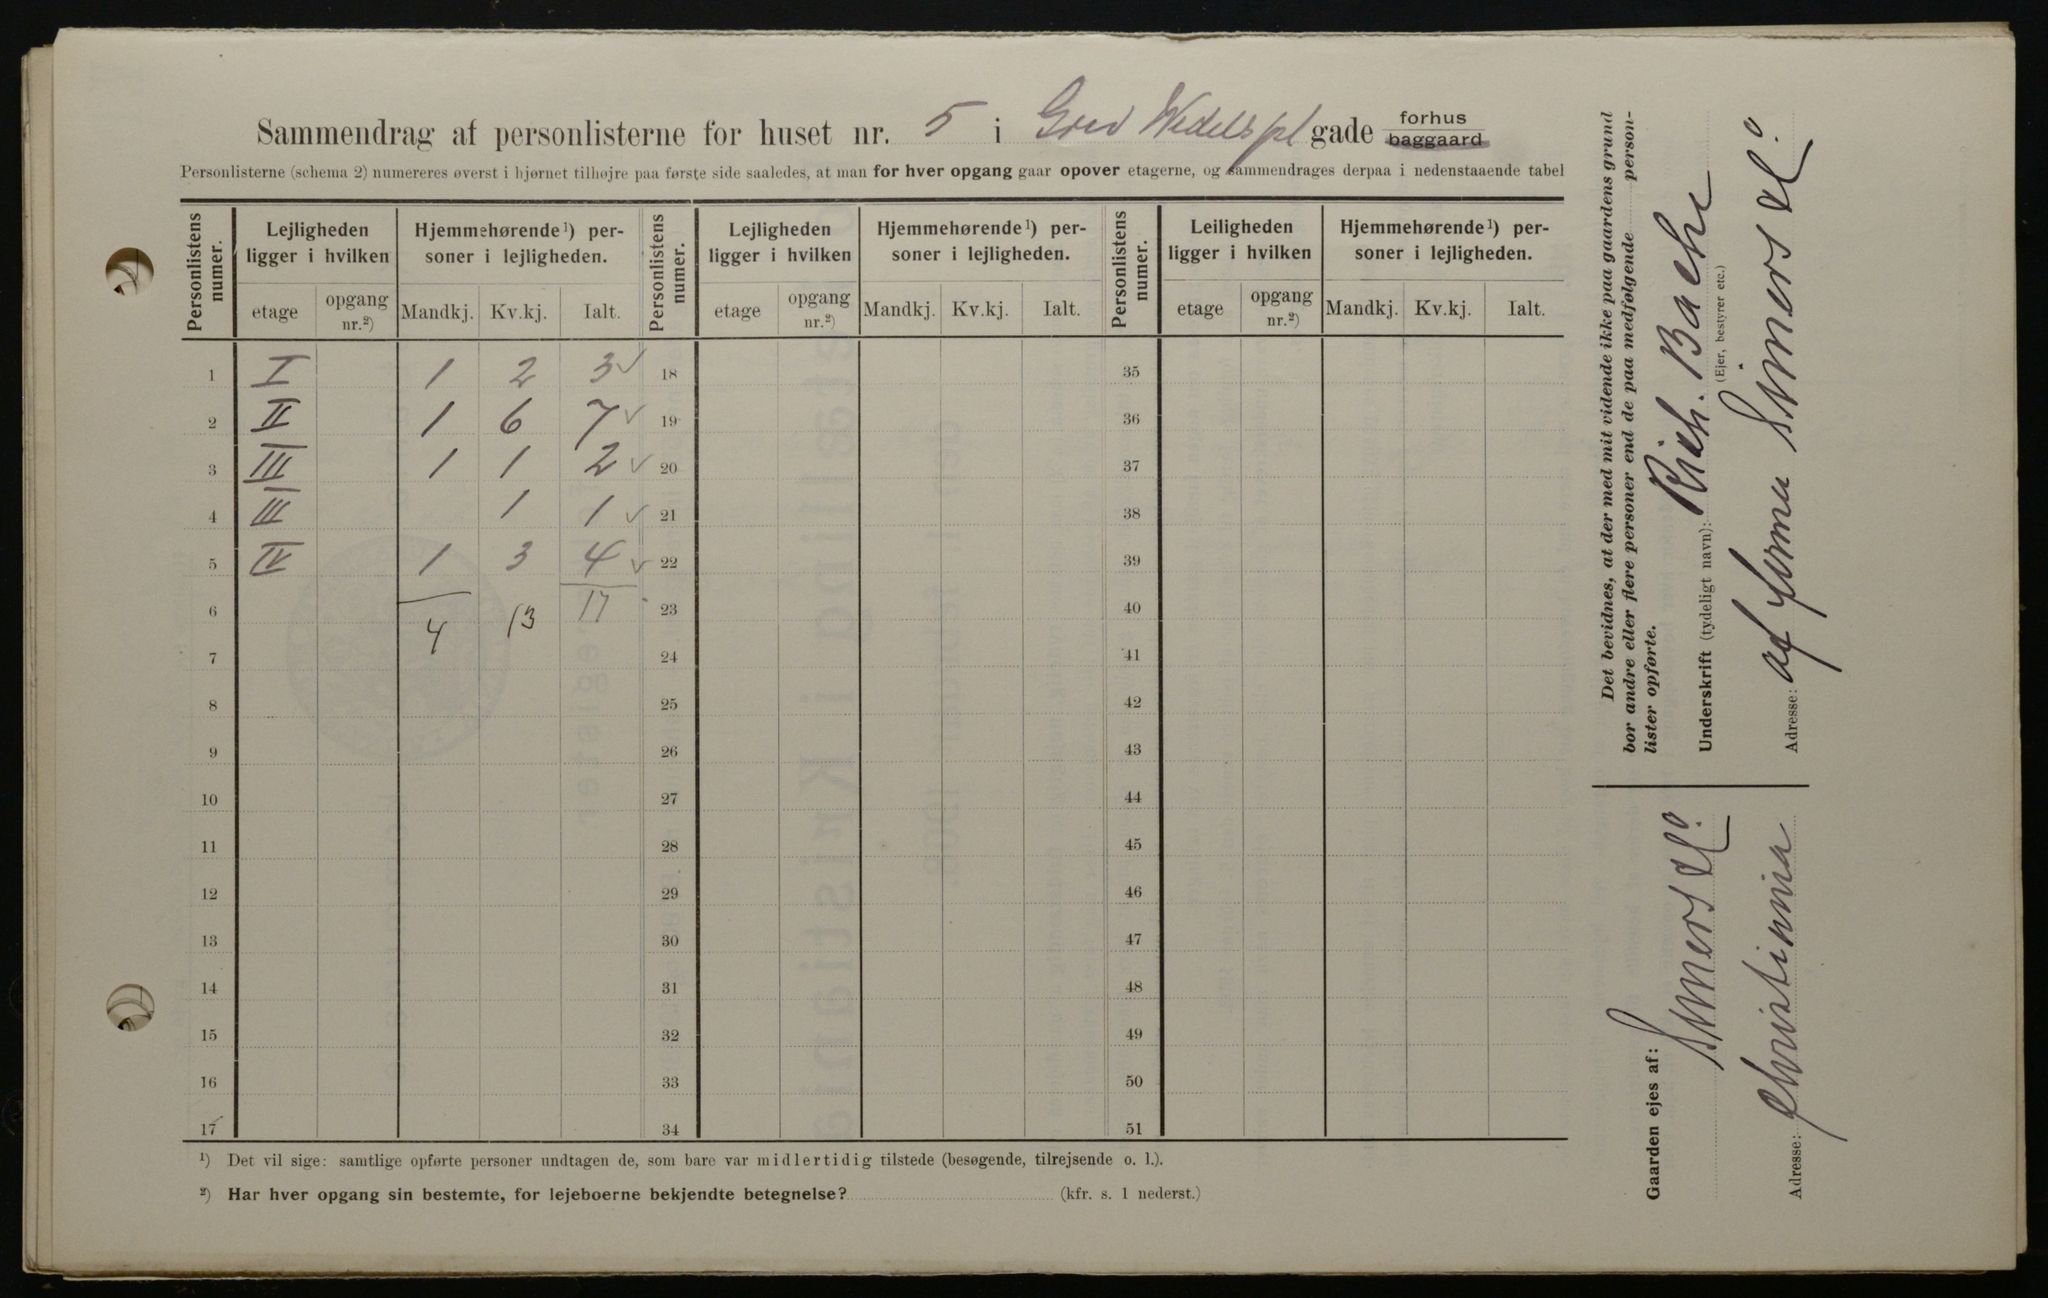 Sammendrag af personlisterne for huset nr. 5 i Grev Wedels pl gade forhus baggaard
Personlisterne (schema 2) numereres øverst i hjørnet tilhøjre paa første side saaledes, at man for hver opgang gaar opover etagerne, og sammendrages derpaa i nedenstaaende tabel
Personlistens numer. Lejligheden ligger i hvilken Hjemmehørende¹) personer i lejligheden. Personlistens numer. Lejligheden ligger i hvilken Hjemmehørende¹) personer i lejligheden. Personlistens numer. Leiligheden ligger i hvilken Hjemmehørende¹) personer i lejligheden.
etage opgang nr.²) Mandkj. Kv.kj. Ialt. etage opgang nr.²) Mandkj. Kv.kj. Ialt. etage opgang nr.²) Mandkj. Kv.kj. Ialt.
1 I 1 2 3 ✓ 18 35
2 II 1 6 7 ✓ 19 36
3 III 1 1 2 ✓ 20 37
4 III 1 1 ✓ 21 38
5 IV 1 3 4 ✓ 22 39
6 4 13 17 23 40
7 24 41
8 25 42
9 26 43
10 27 44
11 28 45
12 29 46
13 30 47
14 31 48
15 32 49
16 33 50
17 34 51
¹) Det vil sige: samtlige opførte personer undtagen de, som bare var midlertidig tilstede (besøgende, tilrejsende o. l.).
²) Har hver opgang sin bestemte, for lejeboerne bekjendte betegnelse? (kfr. s. 1 nederst.)
Det bevidnes, at der med mit vidende ikke paa gaardens grund
bor andre eller flere personer end de paa medfølgende personlister opførte.
Underskrift (tydeligt navn): Rich. Bache
(Ejer, bestyrer etc.)
Adresse: af firma Simers & Co.
Gaarden ejes af: Simers & Co.
Adresse: Christiania